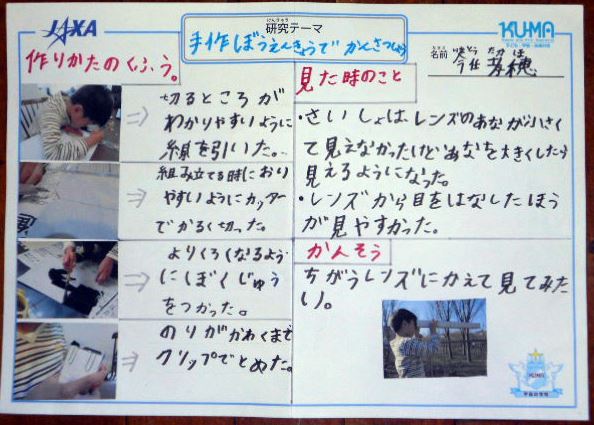 JAXA
けんきゅう
研究テーマ
手作ぼうえんきょうで かんさつしよう
KUMA
子ども・宇宙・未来の会
名前
作りかたのくふう。
切るところが
わかりやすいように
線を引いた。
組み立てる時におり
やすいようにカッター
でかるく切った。
よりくろくなるよう
にぼくじゅう
をつかった。
のりがかわくまで
クリップでとめた。
見た時のこと
・さいしょはレンズのあなが小さく
て見えなかったけどあなを大きくしたら
見えるようになった。
・レンズから目をはなしたほう
が見やすかった。
かんそう
ちがうレンズにかえて見てみた
い。